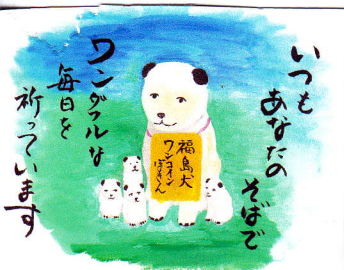 いつも
あなたの
そばで
ワンダフルな
毎日を
祈っています
福島犬
ワンコイン
ぼきん